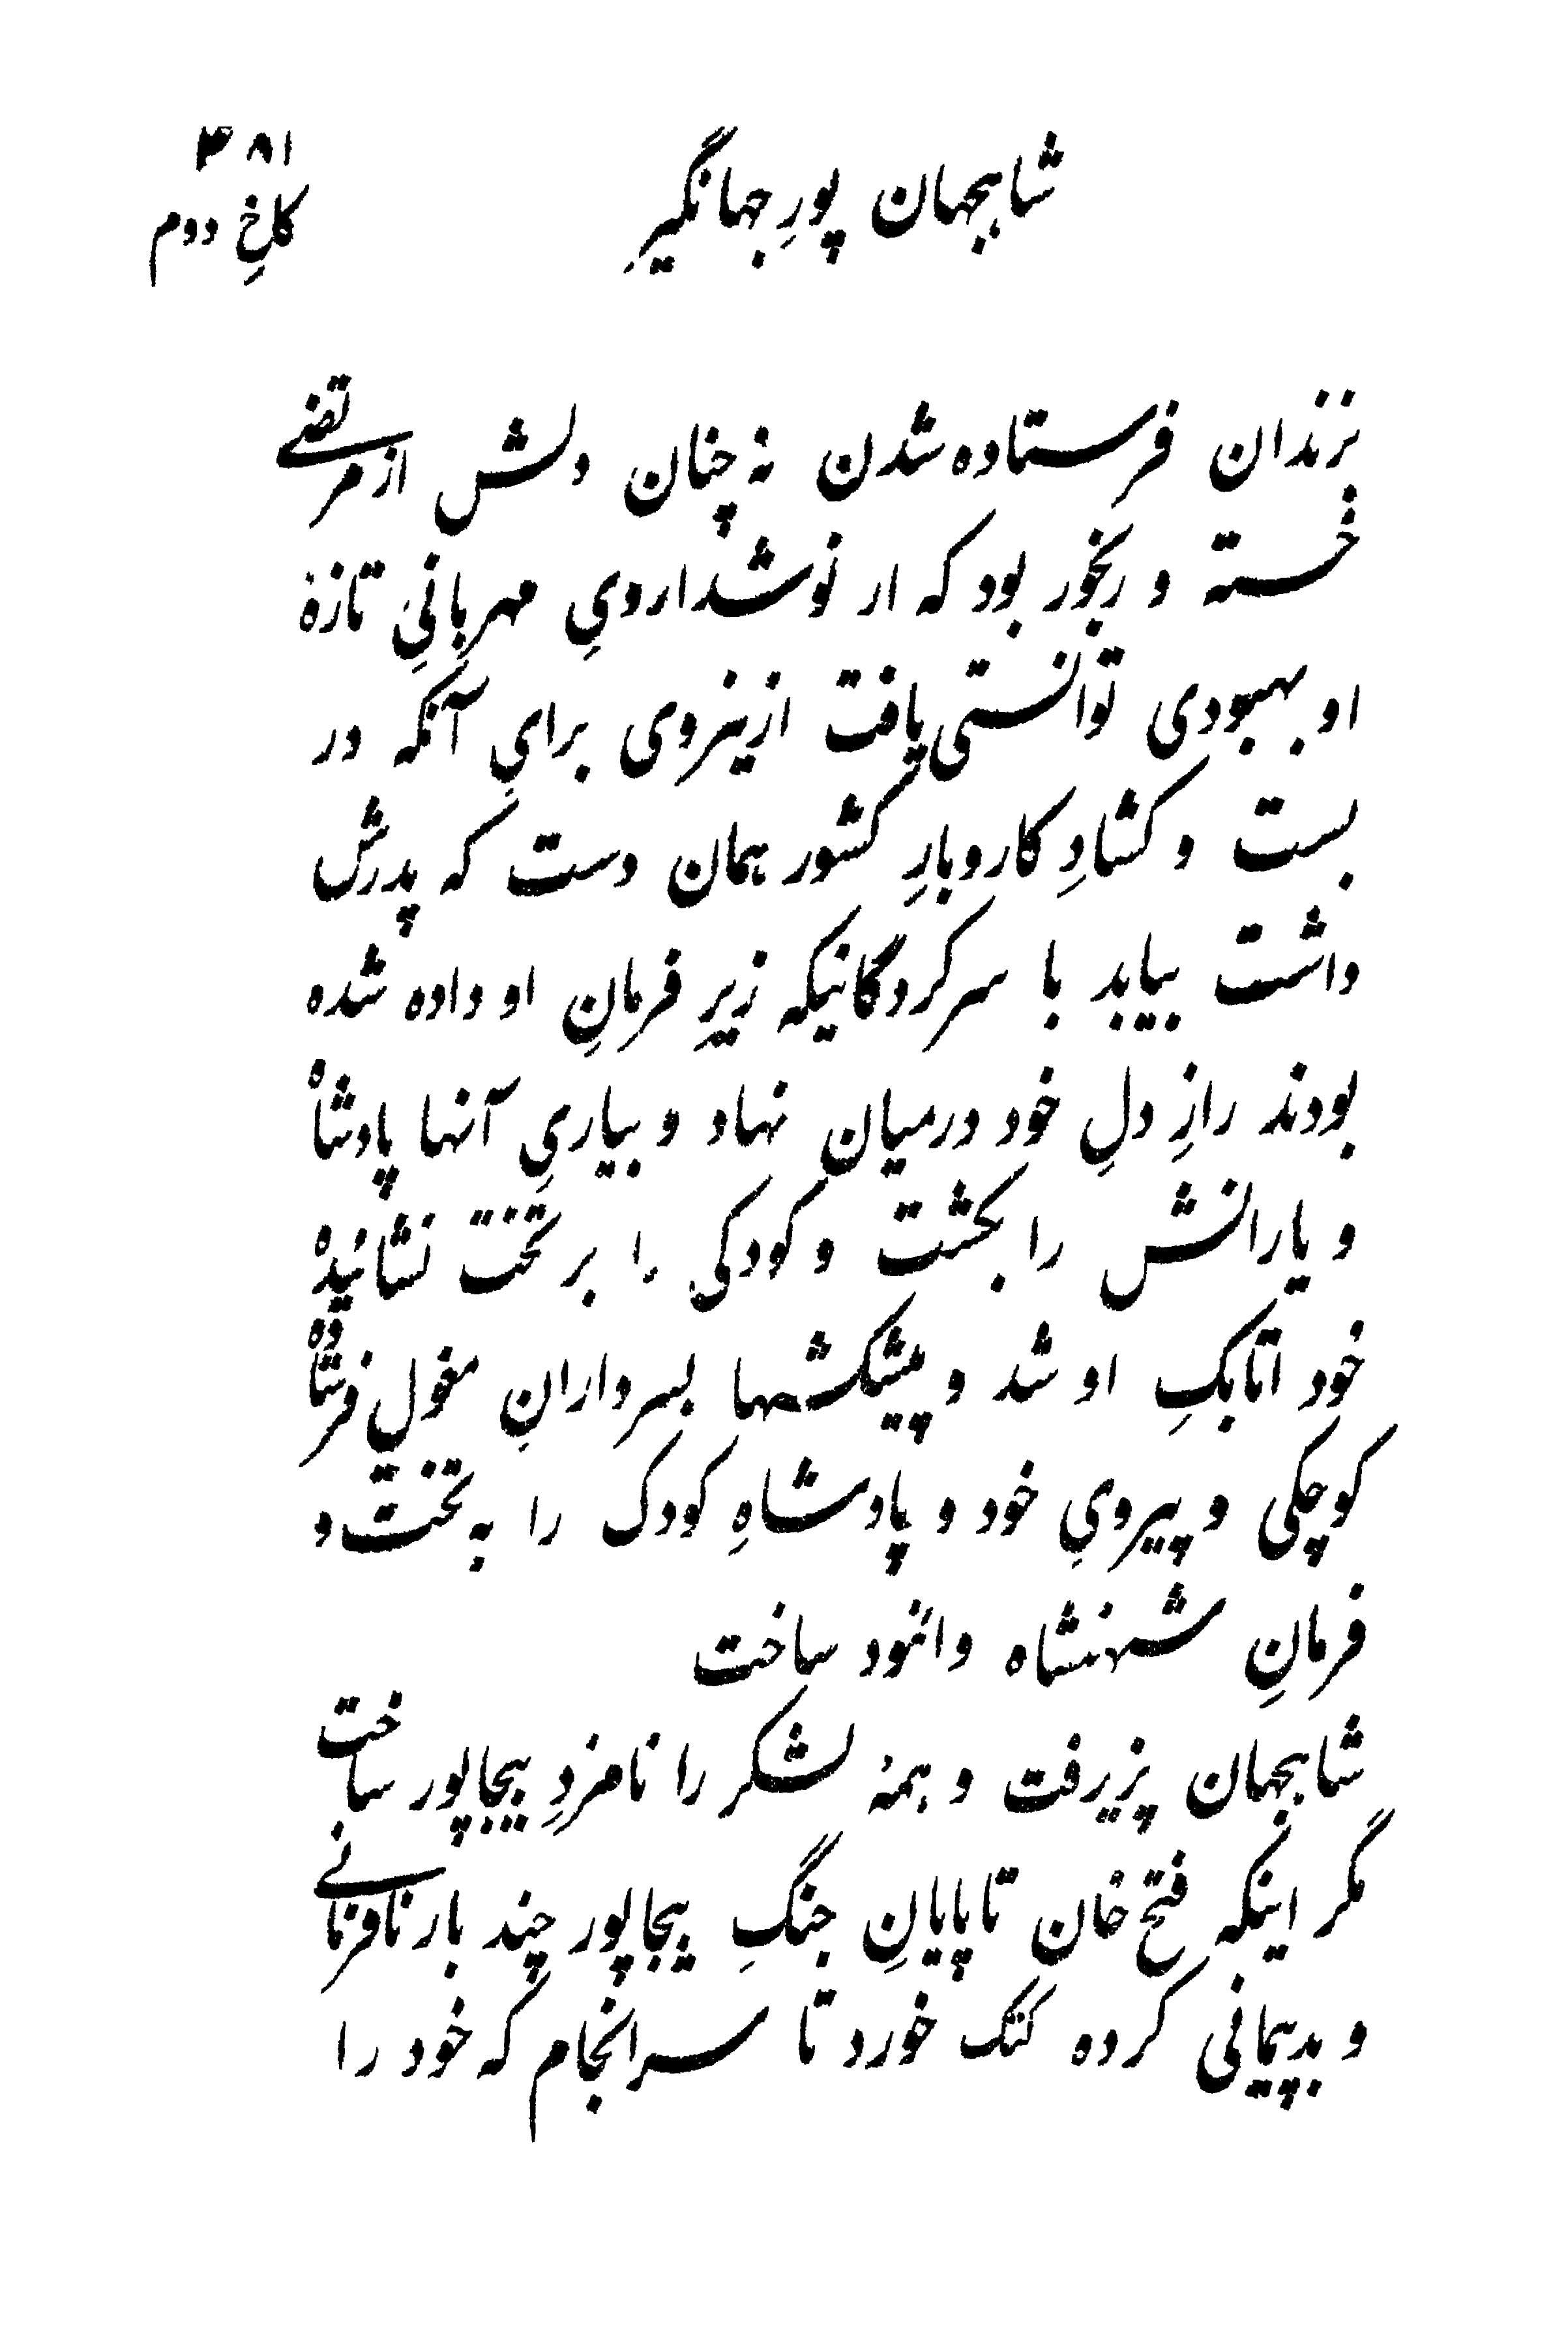 شاهجهان پورِ جهانگیر
۴۸۱
کاخِ دوم
بزندان فرستاده شدن نه چنان دلش از مرتضے
خسته و رنجور بود که از نوشدارویِ مهربانیِ تازۀ
او بهبودی توانستی یافت ازینروی برایِ آنکه در
بست و کشادِ کاروبارِ کشور همان دست که پدرش
داشت بیابد با سرکردگانیکه زیرِ فرمانِ او داده شده
بودند رازِ دلِ خود درمیان نهاد و بیاریِ آنها پادشاه
و یارانش را بکشت و کودکی را بر تخت نشانیده
خود اتابکِ او شد و پیشکشها بسردارانِ مغول فرستاده
کوچکی و پیرویِ خود و پادشاهِ کودک را به تخت و
فرمانِ شهنشاه وانمود ساخت
شاهجهان پزیرفت و همۀ لشکر را نامزدِ بیجاپور ساخت
مگر اینکه فتح خان تا پایانِ جنگِ بیجاپور چند بار نافرمانے
و بدپیمانی کرده کتک خورد تا سرانجام که خود را